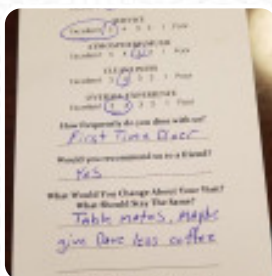 SERVICE
Excellent 5 4 3 2 1 Poor
ATMOSPHERE/MUSIC
Excellent 5 4 3 2 1 Poor
CLEANLINESS
Excellent 5 4 3 2 1 Poor
OVERALL EXPERIENCE
Excellent 5 4 3 2 1 Poor
How frequently do you dine with us?
First Time Diner
Would you recommend us to a friend?
Yes
What Would You Change About Your Visit?
What Should Stay The Same?
Table mates, maybe
give Dave less coffee